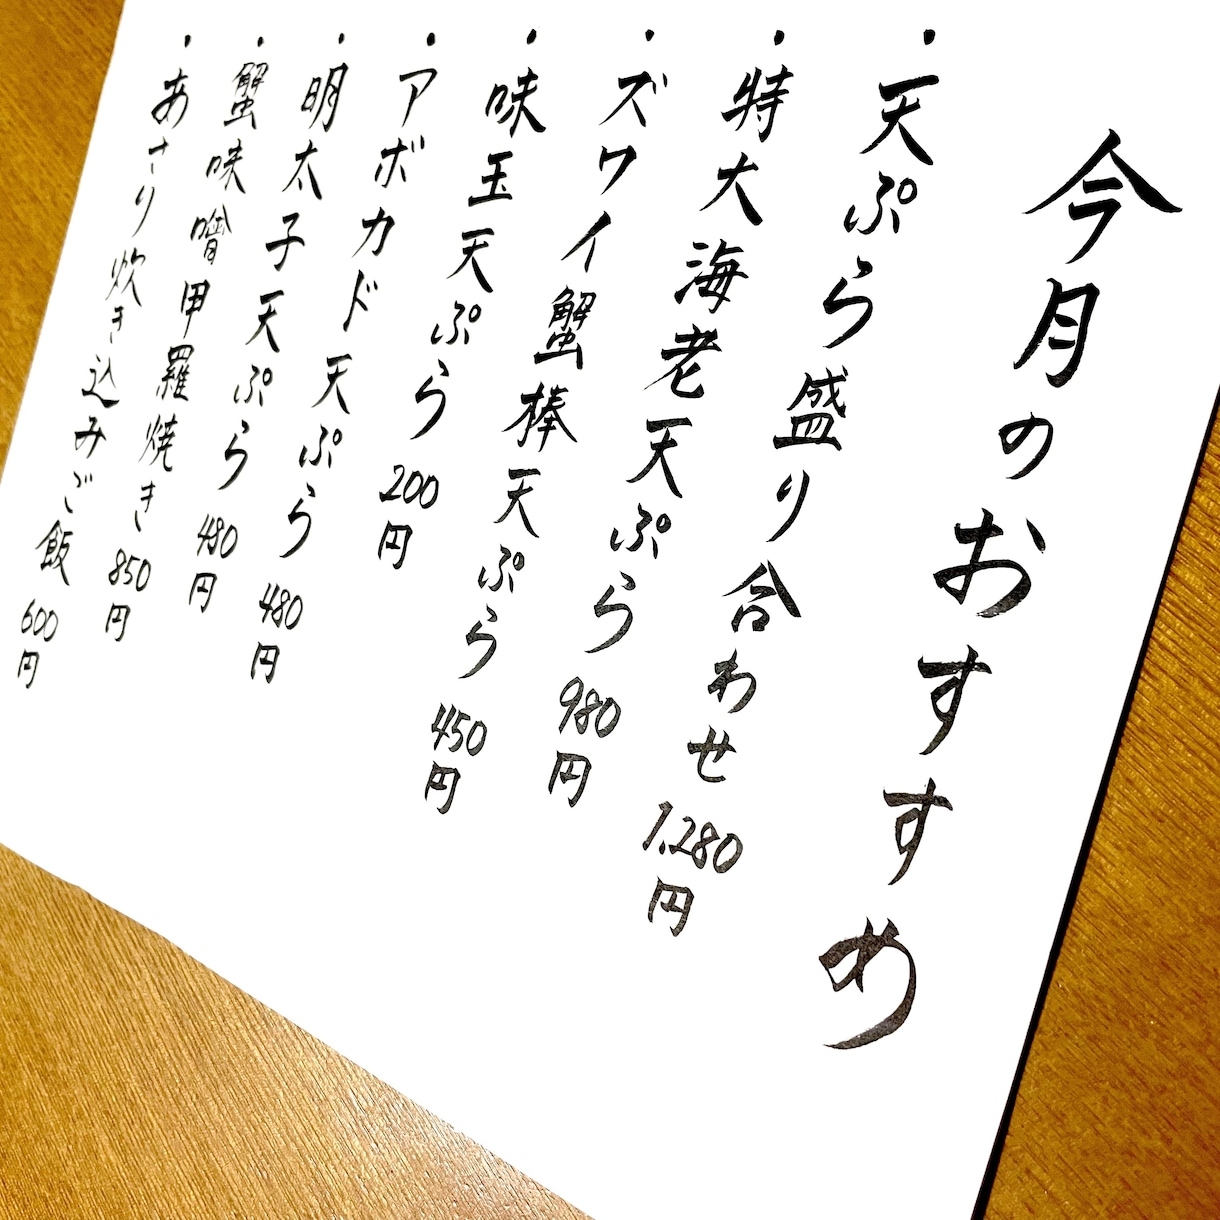 今月のおすすめ
・天ぷら盛り合わせ 1,280円
・特大海老天ぷら 980円
・ズワイ蟹棒天ぷら 450円
・味玉天ぷら 200円
・アボカド天ぷら 480円
・明太子天ぷら 480円
・蟹味噌甲羅焼き 850円
・あさり炊き込みご飯 600円